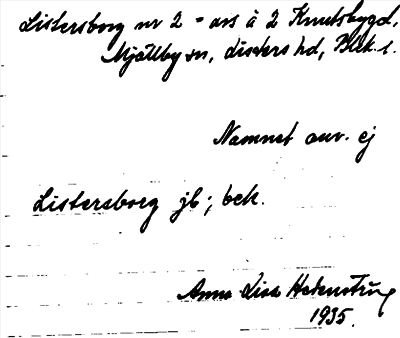 Listersborg nr 2 = avs å 2 Knutsbygd,
Mjällby sn, Listers hd, Blek. l.
Namnet anv. ej
Listersborg jb; bek.
Anna-Lisa
1935.